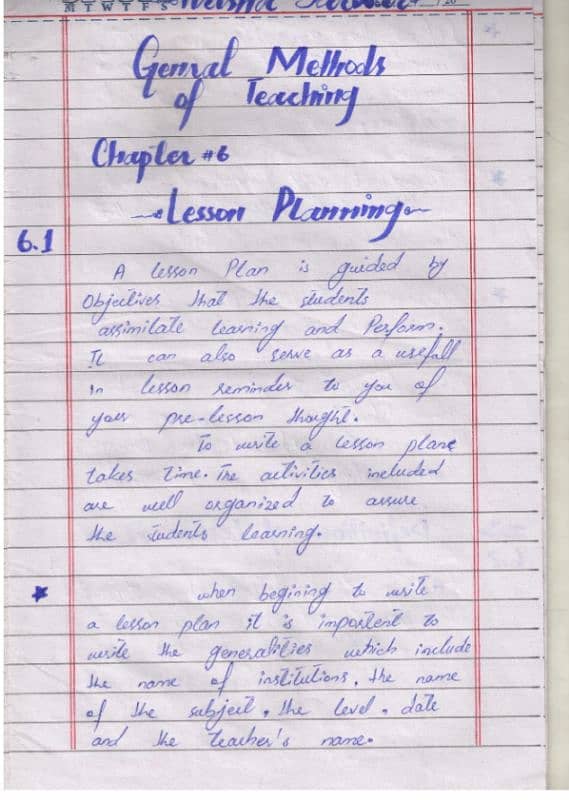 General Methods
of Teaching
Chapter #6
Lesson Planning
6.1
A lesson Plan is guided by
Objectives that the students
assimilate learning and Perform.
It can also serve as a usefull
in lesson reminder to you of
your pre-lesson thought.
To write a lesson plane
takes time. The activities included
are well organized to assure
the students learning.
when begining to write
a lesson plan it is importent to
write the generalities which include
the name of institutions, the name
of the subject, the level, date
and the teacher's name.